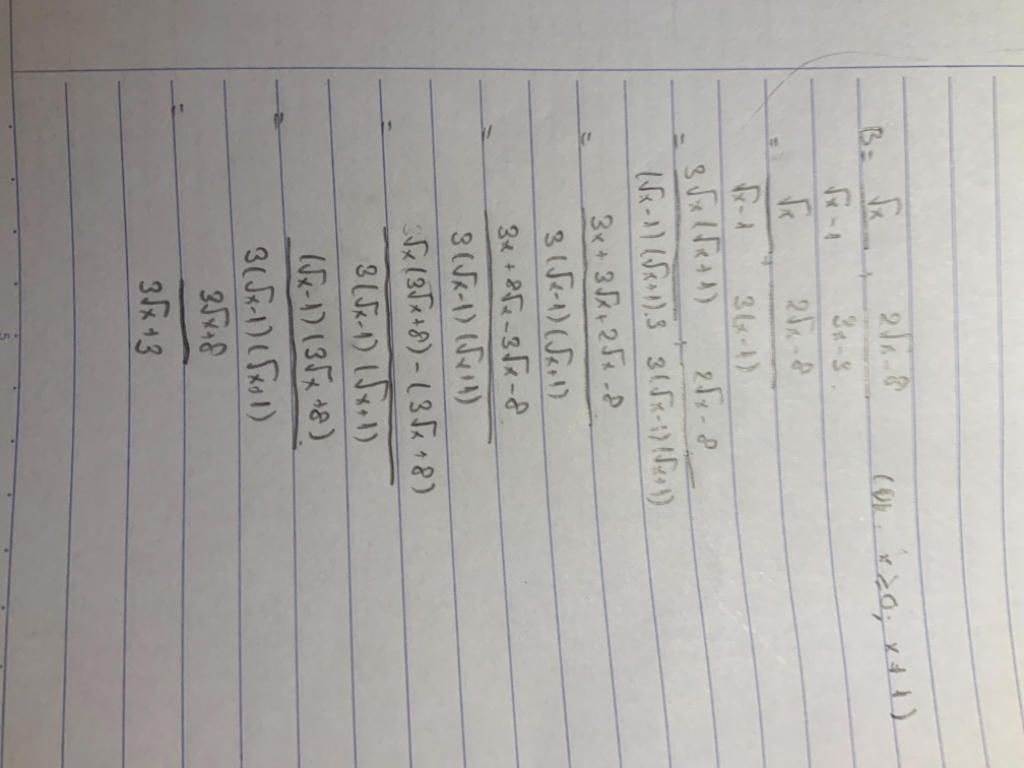 B = √x/(√x-1) + (2√x-8)/(3x-3) (Đk: x ≥ 0; x ≠ 1)
= √x/(√x-1) + (2√x-8)/(3(x-1))
= 3√x(√x+1)/((√x-1)(√x+1).3) + (2√x-8)/(3(√x-1)(√x+1))
= (3x+3√x+2√x-8)/(3(√x-1)(√x+1))
= (3x+8√x-3√x-8)/(3(√x-1)(√x+1))
= (√x(3√x+8)-(3√x+8))/(3(√x-1)(√x+1))
= ((√x-1)(3√x+8))/(3(√x-1)(√x+1))
= (3√x+8)/(3√x+3)